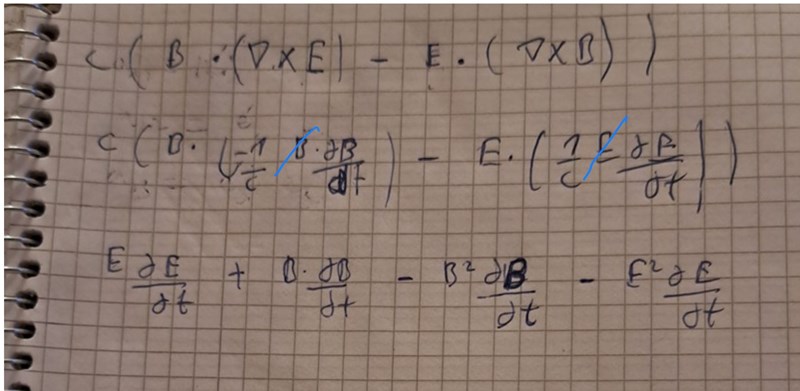 C ( B · (∇×E) − E · (∇×B) )
C ( B · (−1/c B · ∂B/∂t ) − E · ( 1/c E ∂E/∂t ) )
E ∂E/∂t + B · ∂B/∂t − B² ∂B/∂t − E² ∂E/∂t